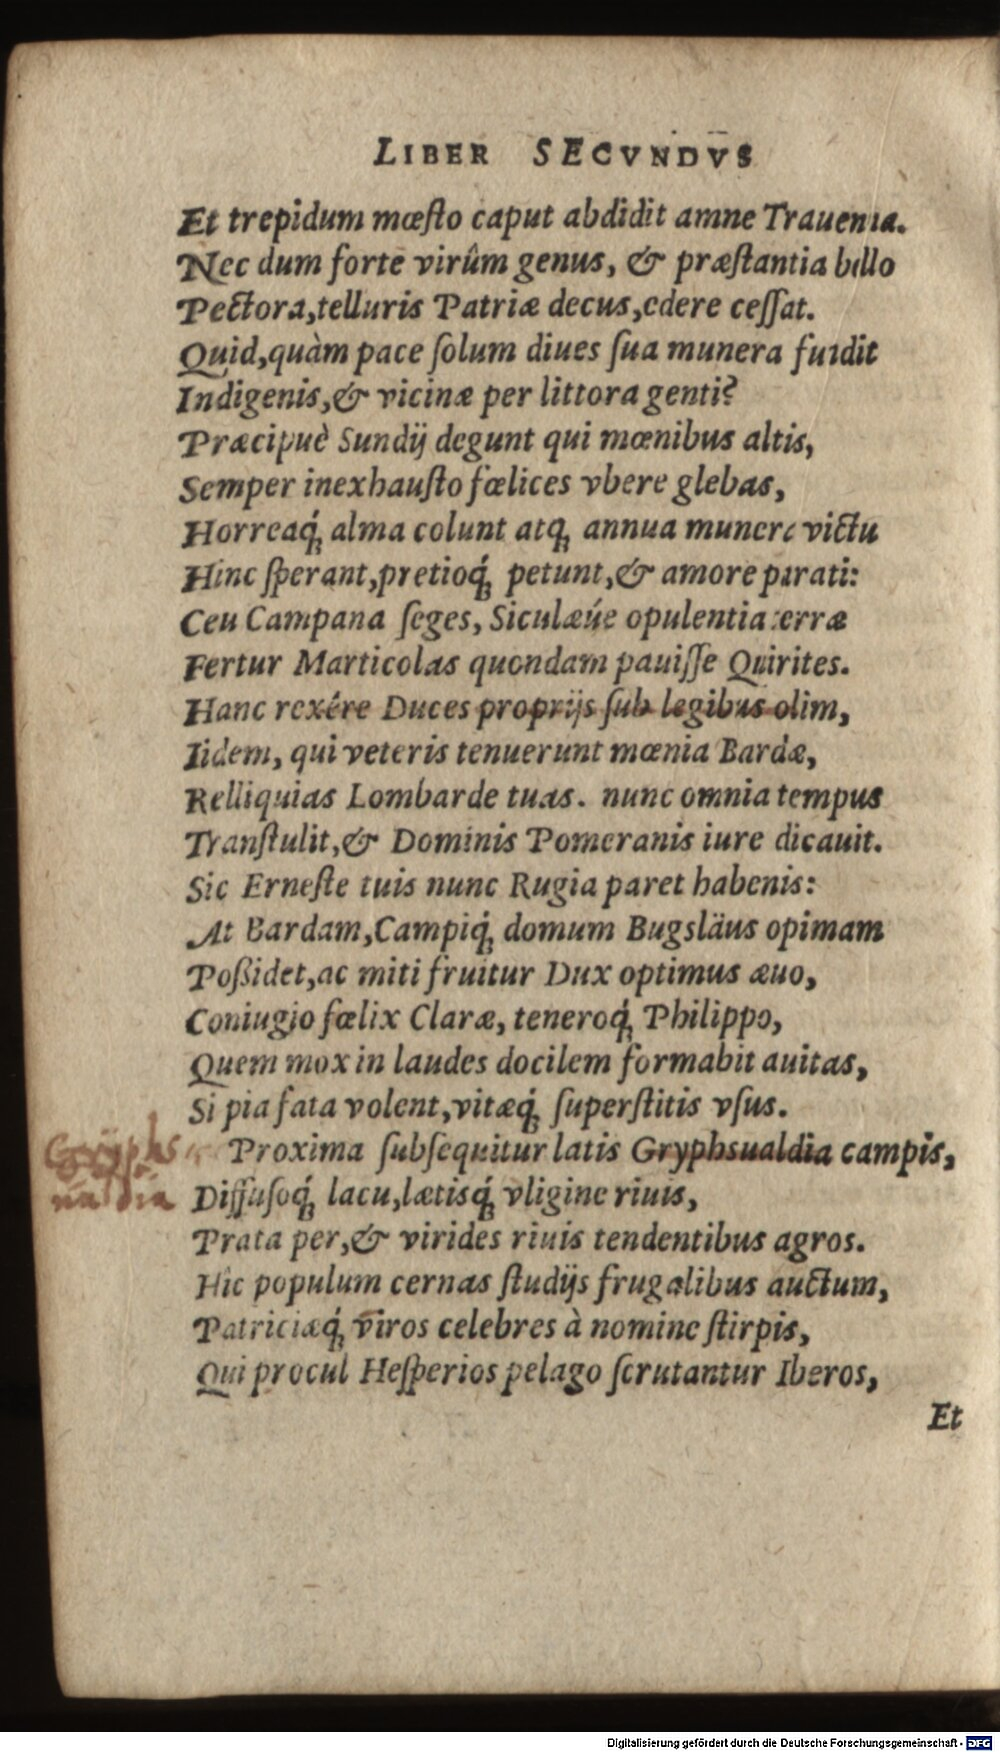 LIBER SECVNDVS
Et trepidum mœſto caput abdidit amne Trauenna.
Nec dum forte virûm genus, & præſtantia bello
Pectora,telluris Patriæ decus,edere ceſſat.
Quid,quàm pace ſolum diues ſua munera fundit
Indigenis,& vicinæ per littora genti?
Præcipuè Sundij degunt qui mœnibus altis,
Semper inexhauſto fœlices vbere glebas,
Horreaq́; alma colunt atq; annua munere victu
Hinc ſperant,pretioq́; petunt,& amore parati:
Ceu Campana ſeges, Siculæúe opulentia terræ
Fertur Marticolas quondam pauiſſe Quirites.
Hanc rexére Duces proprijs ſub legibus olim,
Iidem, qui veteris tenuerunt mœnia Bardæ,
Relliquias Lombarde tuas. nunc omnia tempus
Tranſtulit,& Dominis Pomeranis iure dicauit.
Sic Erneſte tuis nunc Rugia paret habenis:
At Bardam,Campiq́; domum Bugsläus opimam
Poßidet,ac miti fruitur Dux optimus æuo,
Coniugio fœlix Claræ, teneroq́; Philippo,
Quem mox in laudes docilem formabit auitas,
Si pia fata volent,vitæq́; ſuperſtitis vſus.
Gryphs Proxima ſubſequitur latis Gryphsualdia campis,
ualdia Diffuſoq́; lacu,lætisq́; vligine riuis,
Prata per,& virides riuis tendentibus agros.
Hic populum cernas ſtudijs frugalibus auctum,
Patriciæq́; viros celebres à nomine ſtirpis,
Qui procul Heſperios pelago ſcrutantur Iberos,
Et
Digitalisierung gefördert durch die Deutsche Forschungsgemeinschaft - DFG